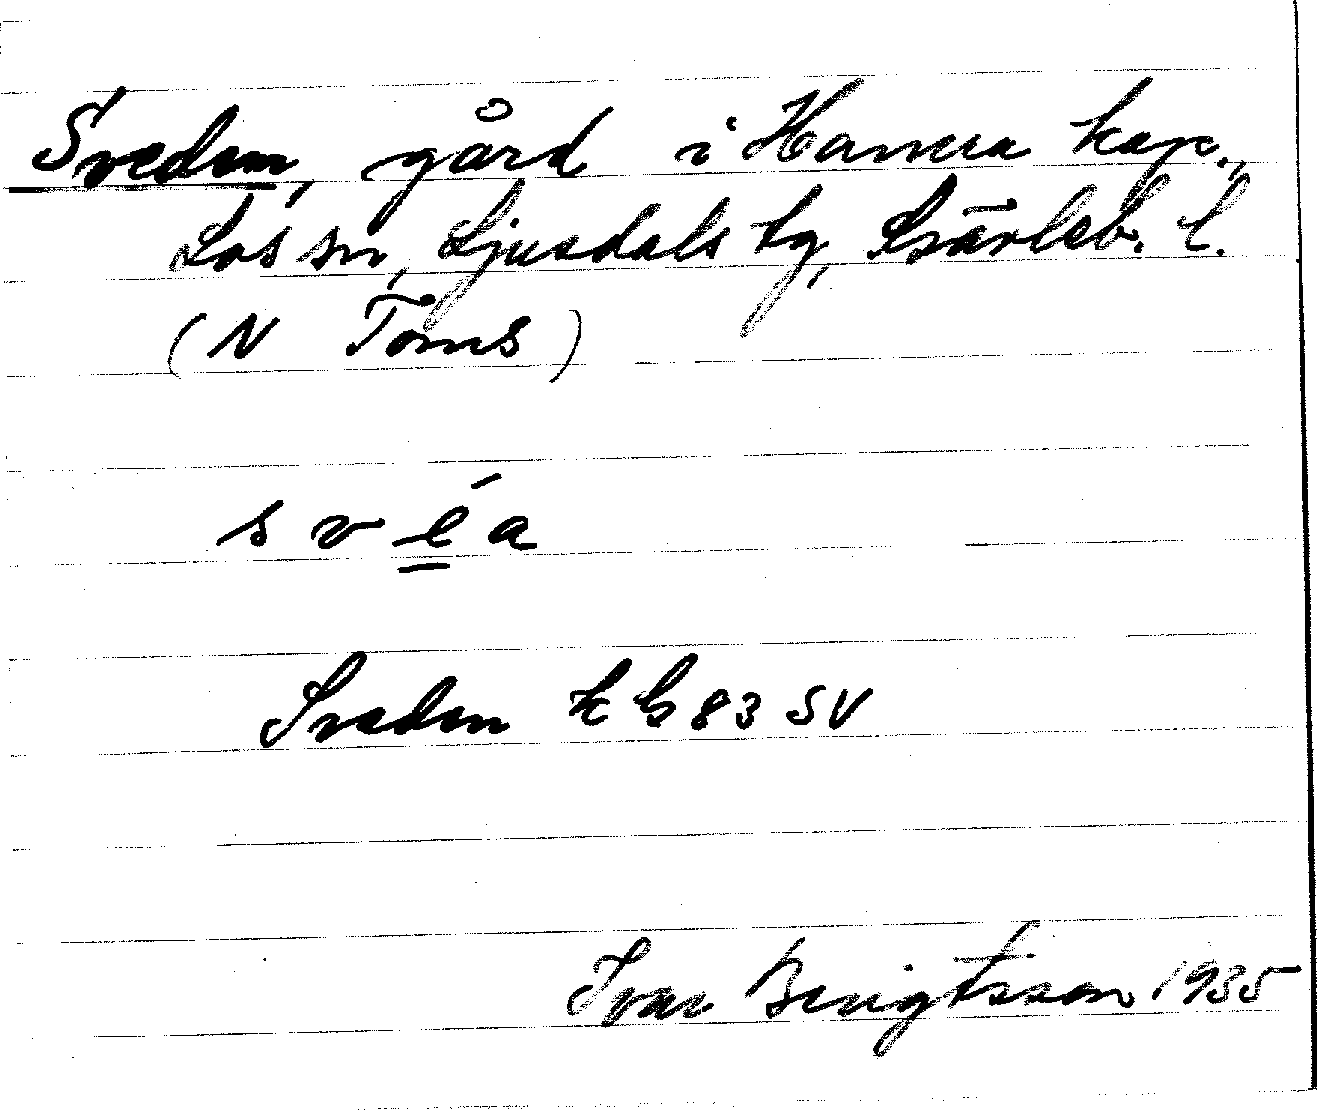 Sveden, gård i Hamra kap.,
Los sn, Ljusdals tg, Gävleb. l.
(N Toms)
s v é a
Sveden kb 83 SV
Ivar Bengtsson 1935